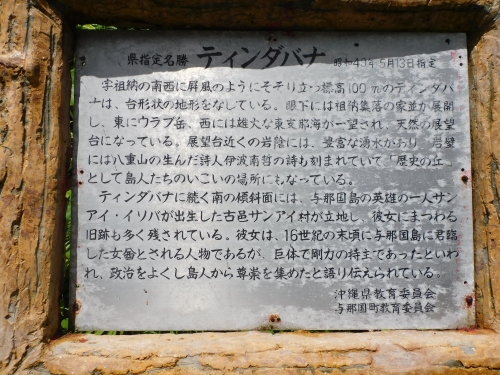 県指定名勝 ティンダバナ 昭和40年5月13日指定
字祖納の南西に屏風のようにそそり立つ標高100mのティンダバ
ナは、台形状の地形をなしている。眼下には祖納集落の家並が展開
し、東にウラブ岳、西には雄大な東支那海が一望され、天然の展望
台になっている。展望台近くの岩陰には、豊富な湧水があり、岩壁
には八重山の生んだ詩人伊波南哲の詩も刻まれていて「歴史の丘」
として島人たちのいこいの場所にもなっている。
ティンダバナに続く南の傾斜面には、与那国島の英雄の一人サン
アイ・イソバが出生した古邑サンアイ村が立地し、彼女にまつわる
旧跡も多く残されている。彼女は、16世紀の末頃に与那国島に君臨
した女酋とされる人物であるが、巨体で剛力の持主であったといわ
れ、政治をよくし島人から尊崇を集めたと語り伝えられている。
沖縄県教育委員会
与那国町教育委員会